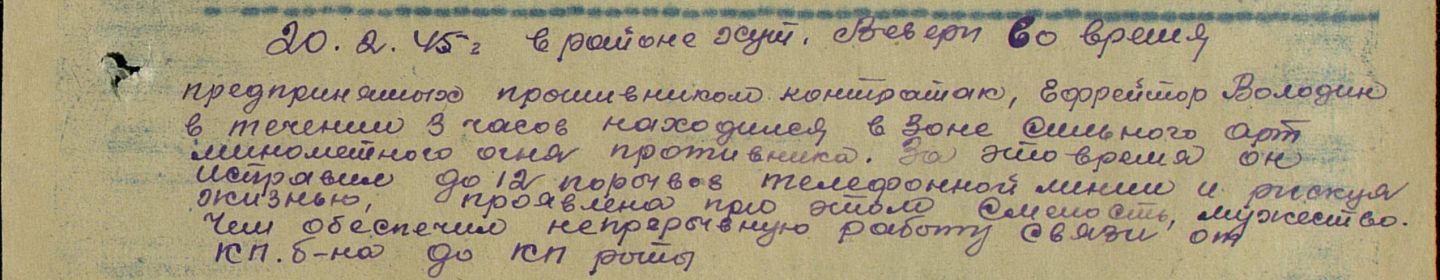 20.2.45г в районе хут. Вевери во время
предпринятых противником контратак, Ефрейтор Володин
в течении 3 часов находился в зоне сильного арт
минометного огня противника. За это время он
исправил до 12 порывов телефонной линии и рискуя
жизнью, проявлена при этом смелость, мужество.
Чем обеспечил непрерывную работу связи от
КП. б-на до КП роты